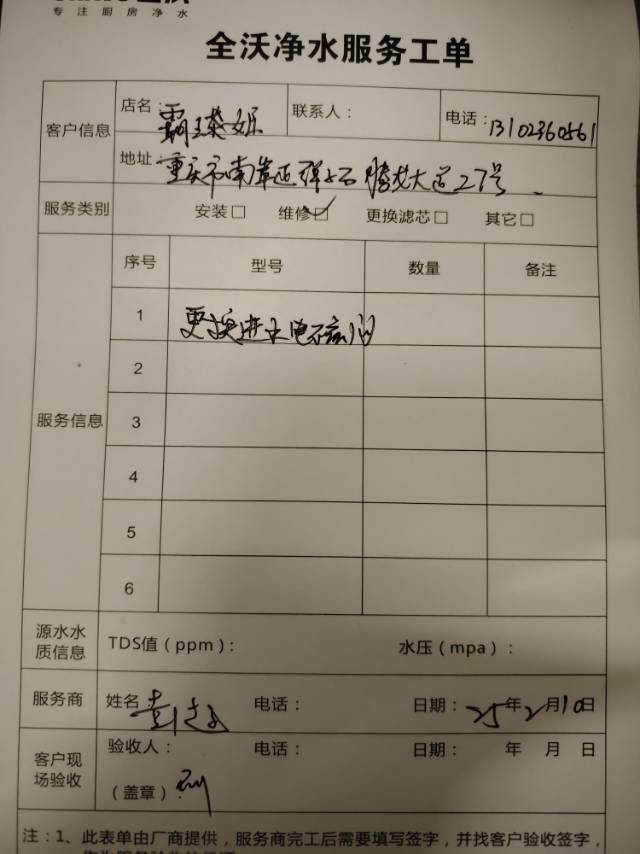 专注厨房净水
全沃净水服务工单
客户信息
店名 霸王茶姬 联系人： 电话：13102360561
地址 重庆市南岸区弹子石腾龙大道27号
服务类别 安装□ 维修☑ 更换滤芯□ 其它□
服务信息
序号 型号 数量 备注
1 更换进水电磁阀
2
3
4
5
6
源水水质信息 TDS值（ppm）： 水压（mpa）：
服务商 姓名 电话： 日期：25年2月10日
客户现场验收 验收人： 电话： 日期： 年 月 日
（盖章）：
注：1、此表单由厂商提供，服务商完工后需要填写签字，并找客户验收签字，